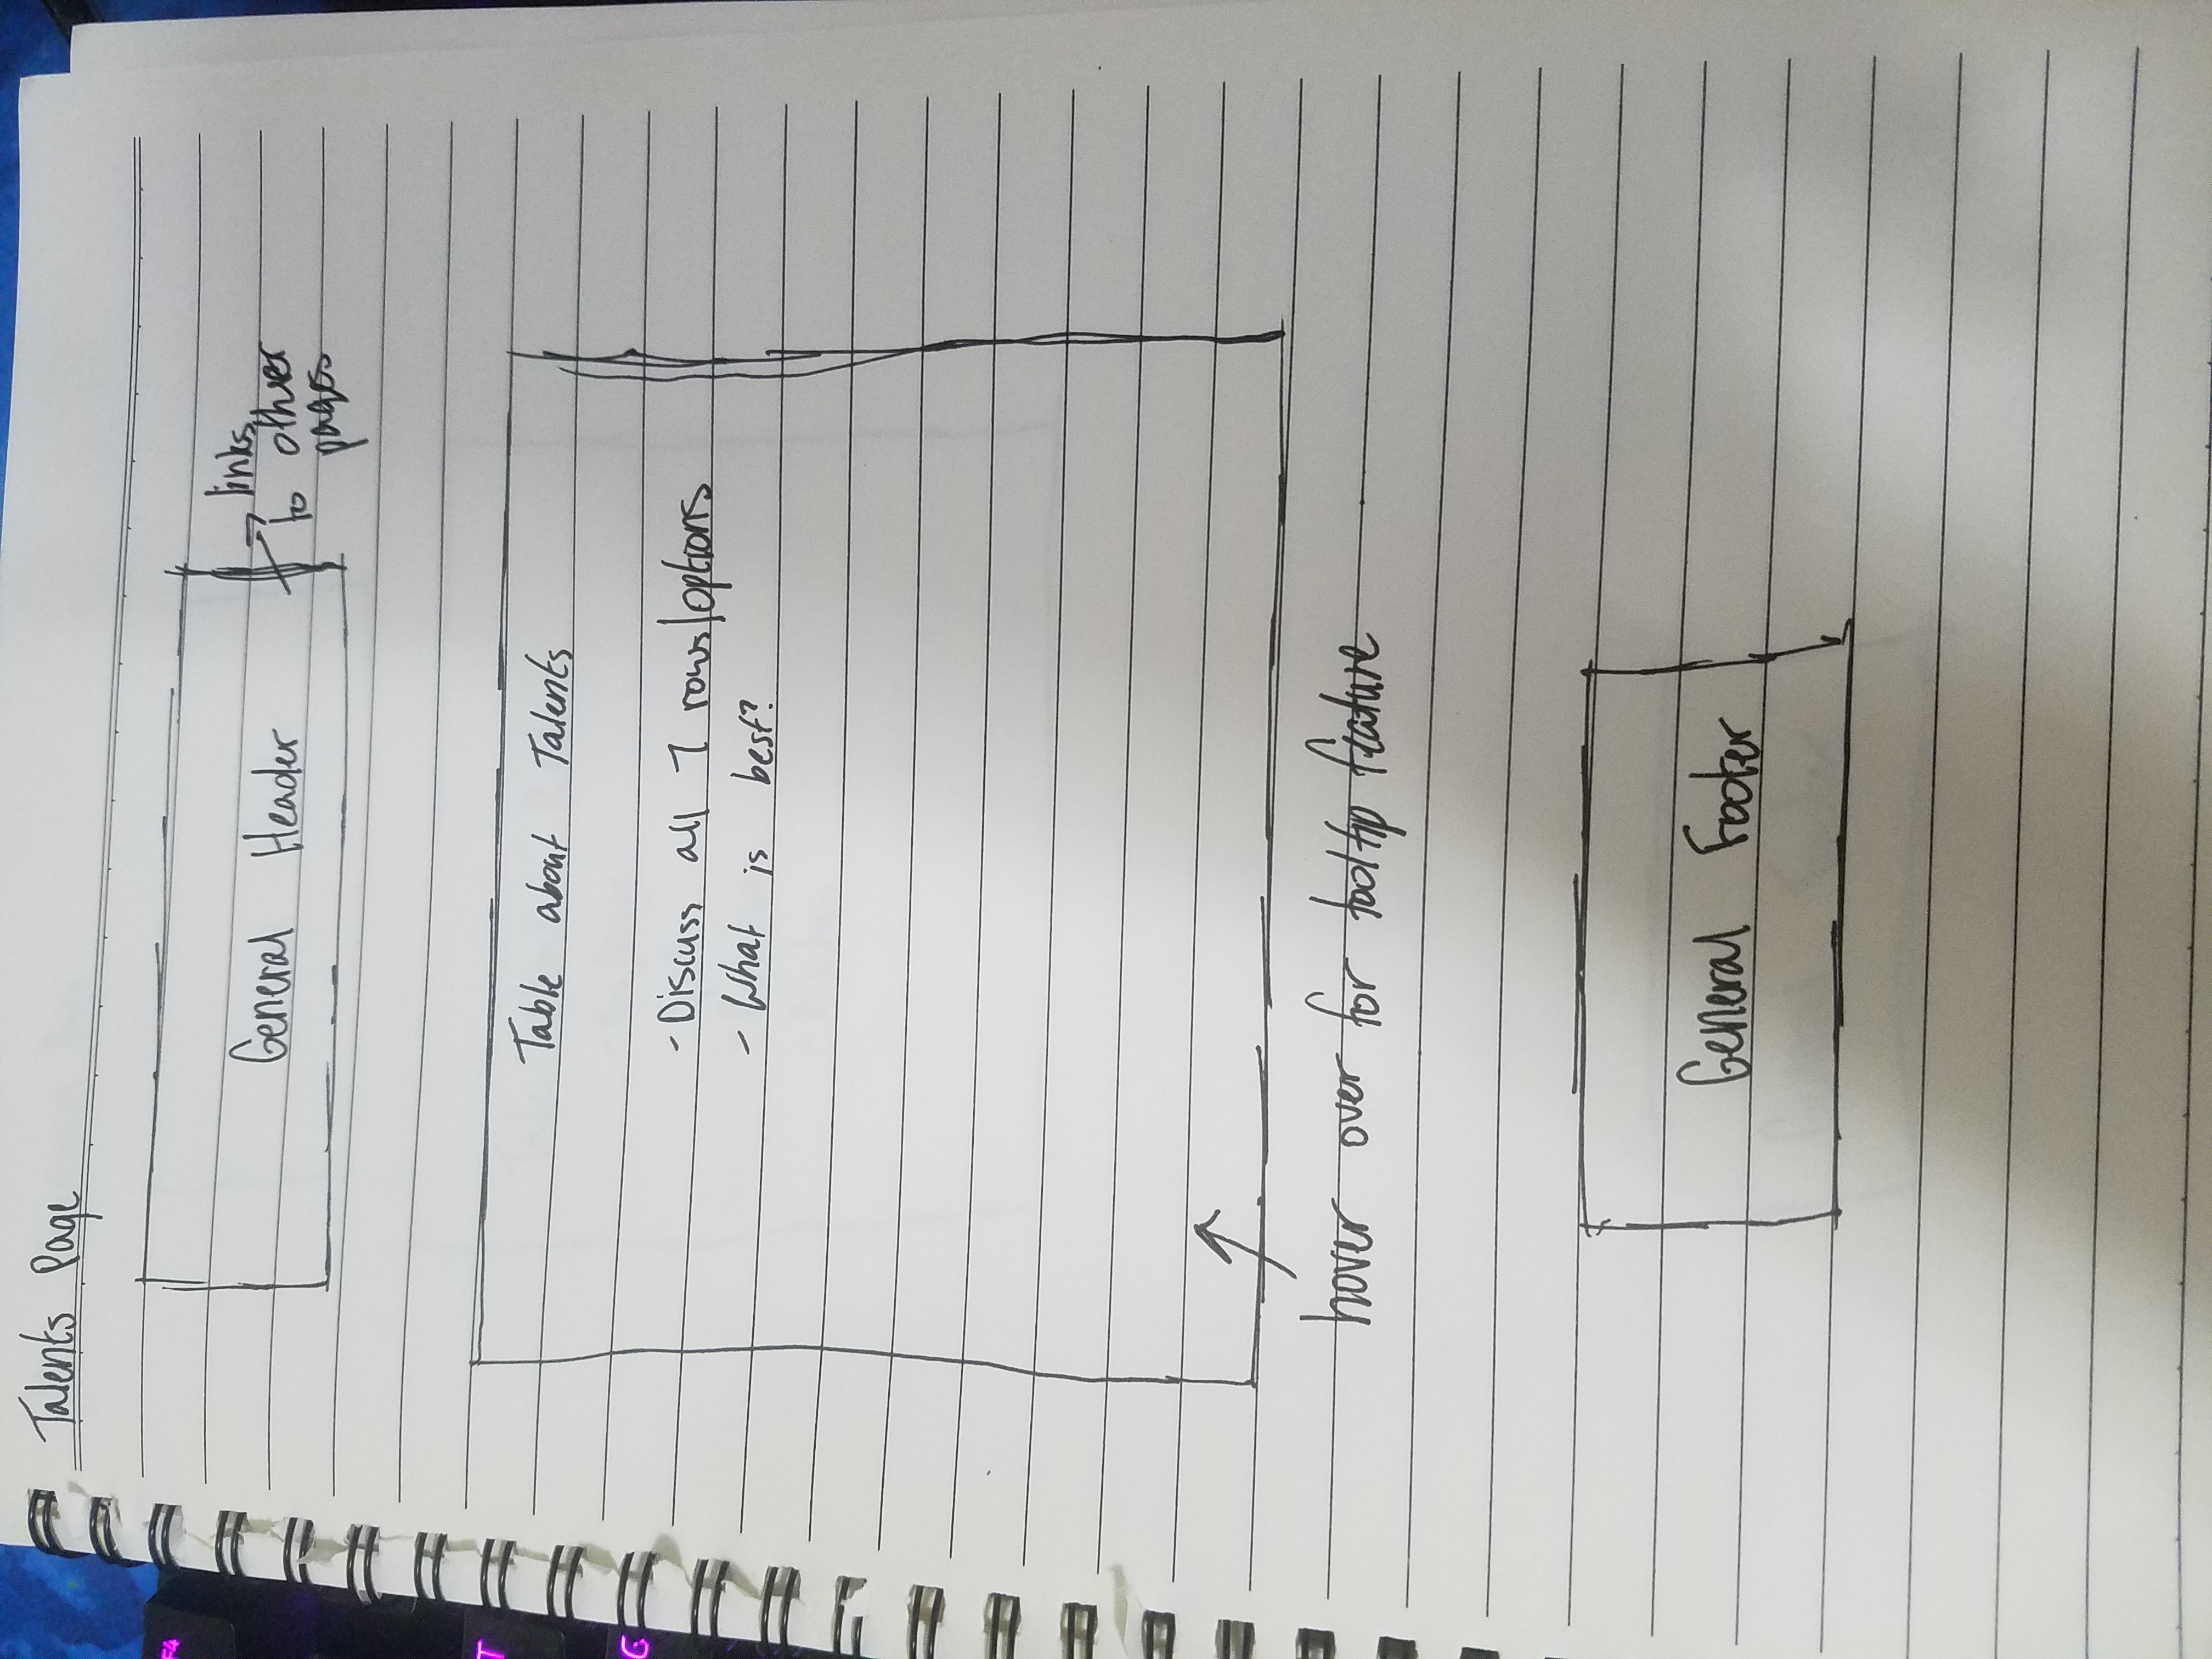 Talents Page
General Header
links
to other
pages
Table about Talents
- Discuss all 7 rows/options
- What is best?
hover over for tooltip feature
General Footer
F4
T
G